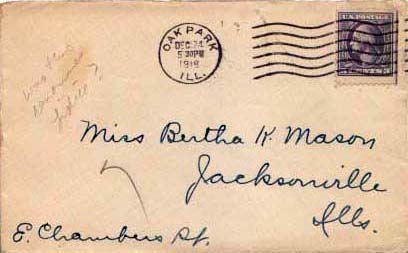 OAK PARK
DEC 24
5 30 PM
1918
ILL.
U.S. POSTAGE
Miss Bertha K. Mason
Jacksonville
Ills.
E. Chambers St.